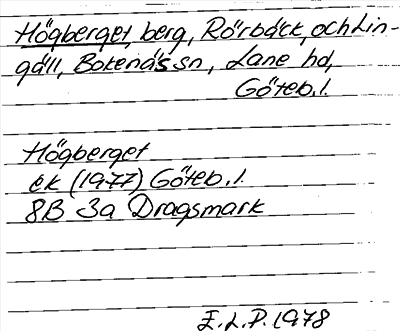 Högberget, berg, Rörbäck, och Lin-
gäll, Bokenäs sn, Lane hd,
Göteb. l.
Högberget
ek (1977) Göteb. l.
8B 3a Dragsmark
E. L. P. 1978